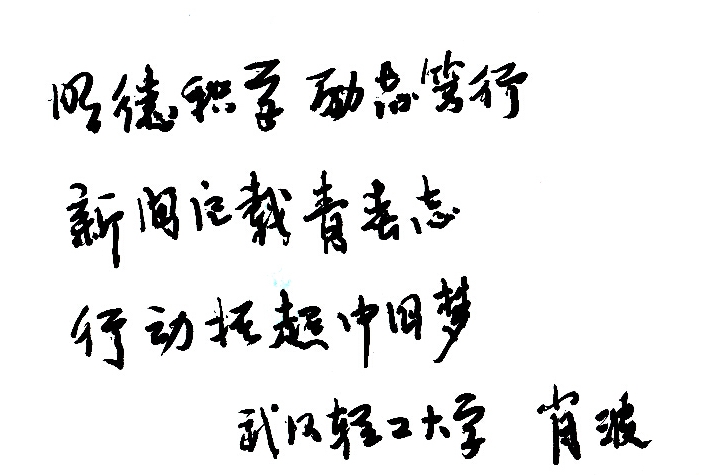 明德积学励志笃行
新闻记载青春志
行动托起中国梦
武汉轻工大学 肖波